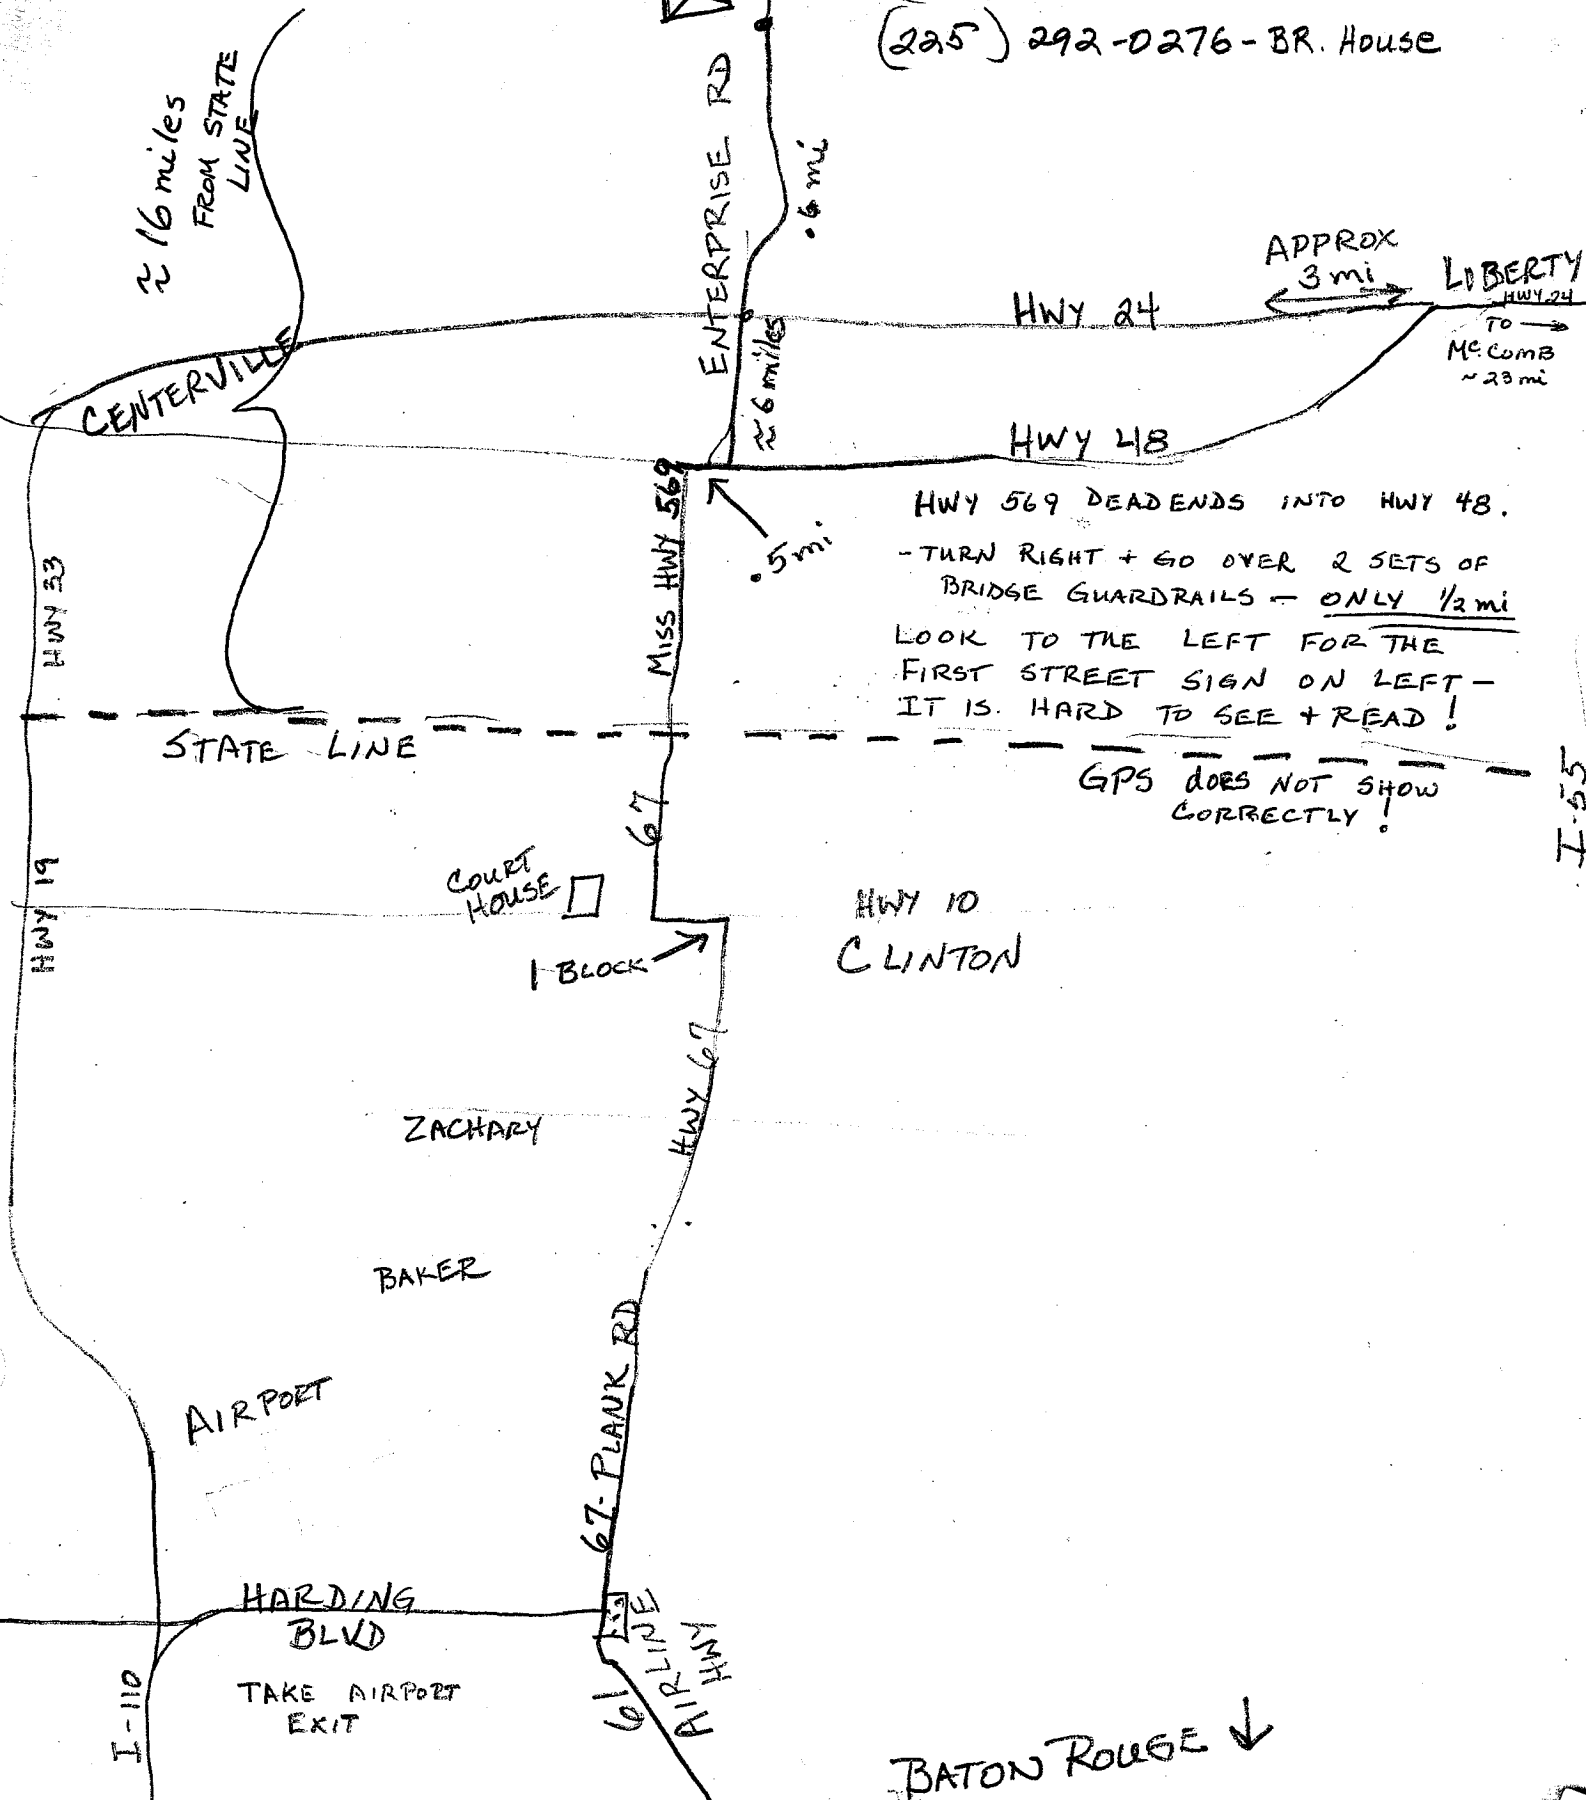 (225) 292-0276 - BR. House
≈ 16 miles
FROM STATE
LINE
ENTERPRISE RD
.6 mi
APPROX
3 mi
LIBERTY
HWY 24
HWY 24
TO →
McCOMB
~ 23 mi
CENTERVILLE
≈ 6 miles
HWY 48
Miss HWY 569
.5 mi
HWY 569 DEADENDS INTO HWY 48.
- TURN RIGHT + GO OVER 2 SETS OF
BRIDGE GUARDRAILS - ONLY 1/2 mi
LOOK TO THE LEFT FOR THE
FIRST STREET SIGN ON LEFT -
IT IS HARD TO SEE + READ!
HWY 33
STATE LINE
GPS dOES NOT SHOW
CORRECTLY!
I-55
67
HWY 19
COURT
HOUSE
1 BLOCK
HWY 10
CLINTON
HWY 67
ZACHARY
BAKER
AIRPORT
67- PLANK RD
HARDING
BLVD
TAKE AIRPORT
EXIT
I-110
61
AIRLINE
HWY
BATON ROUGE ↓